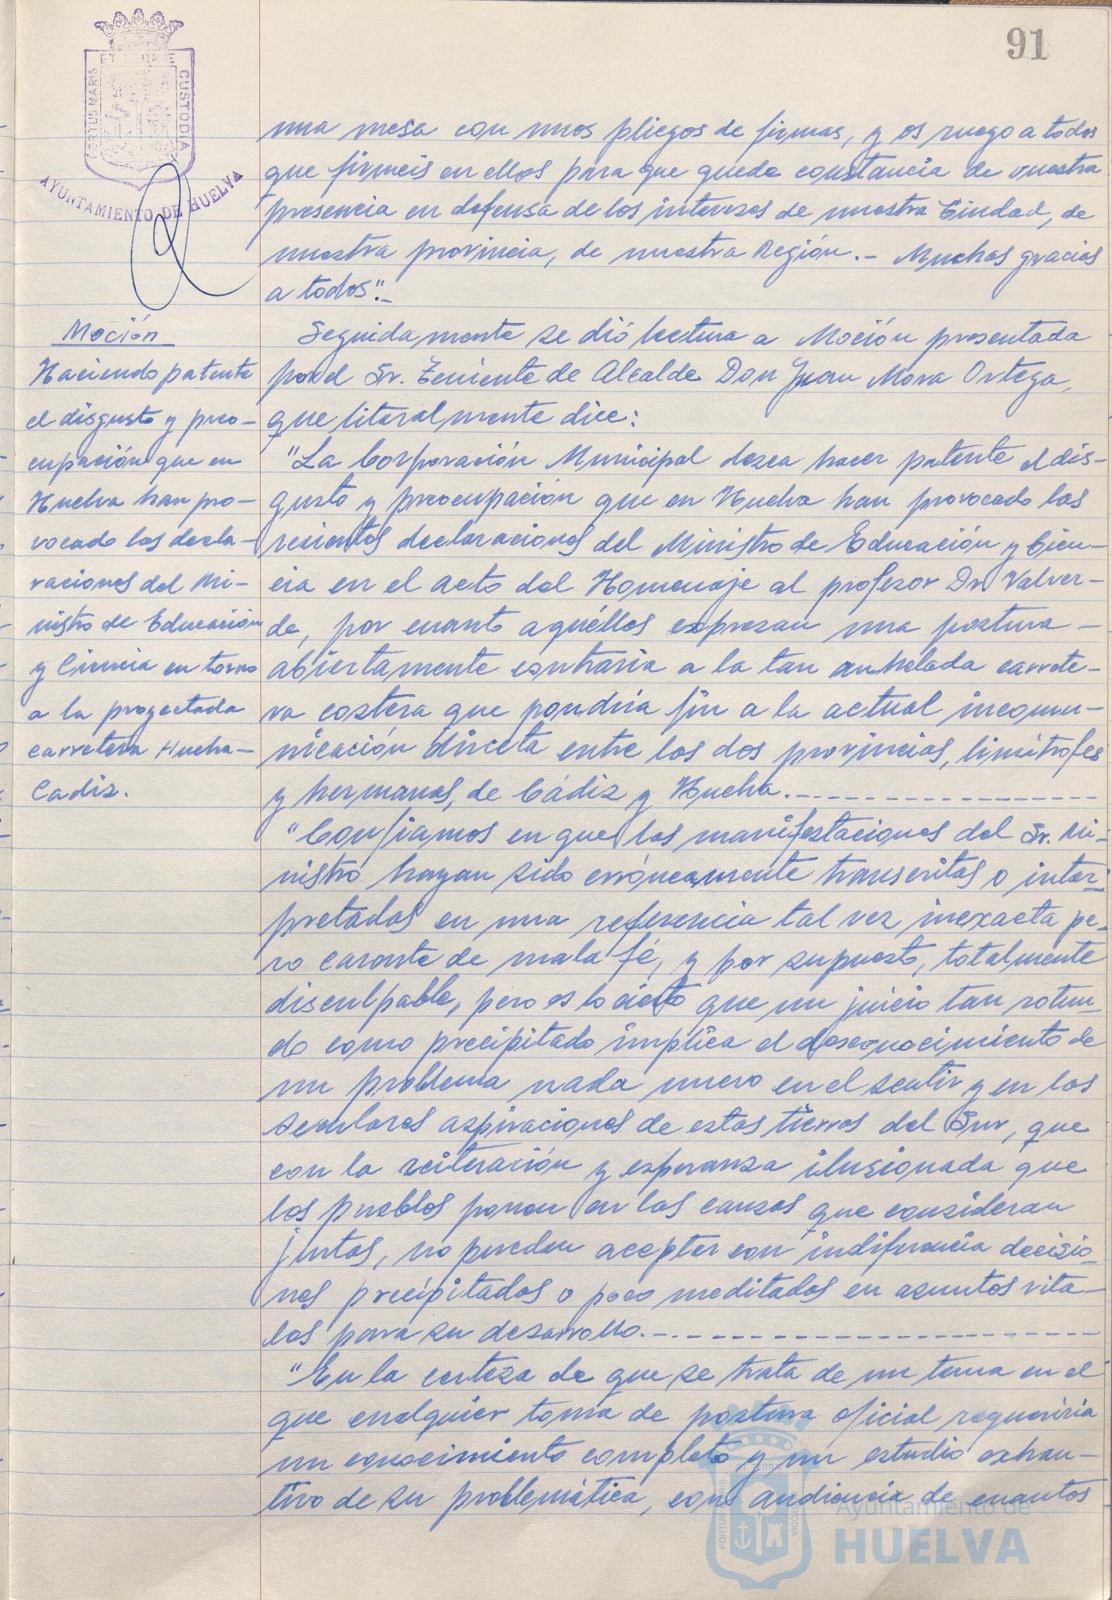 91
PORTUS MARIS
ET TERRE
CUSTODIA
AYUNTAMIENTO DE HUELVA
una mesa con unos pliegos de firmas, y os ruego a todos
que firmeis en ellos para que quede constancia de vuestra
presencia en defensa de los intereses de nuestra Ciudad, de
nuestra provincia, de nuestra Región.- Muchas gracias
a todos".-
Moción
Haciendo patente
el disgusto y preo-
cupación que en
Huelva han pro-
vocado las decla-
raciones del Mi-
nistro de Educación
y Ciencia en torno
a la proyectada
carretera Huelva-
Cadiz.
Seguidamente se dió lectura a Moción presentada
por el Sr. Teniente de Alcalde Don Juan Mora Ortega,
que literalmente dice:
"La Corporación Municipal desea hacer patente el dis-
gusto y preocupación que en Huelva han provocado las
recientes declaraciones del Ministro de Educación y Cien-
cia en el acto del Homenaje al profesor Dr. Valver-
de, por cuanto aquéllos expresan una postura -
abiertamente contraria a la tan anhelada carrete-
ra costera que pondría fin a la actual incomu-
nicación directa entre las dos provincias, limítrofes
y hermanas, de Cádiz y Huelva.---------------
"Confiamos en que las manifestaciones del Sr. Mi-
nistro hayan sido erróneamente transcritas o inter-
pretadas en una referencia tal vez inexacta pe-
ro carente de mala fé, y por supuesto, totalmente
disculpable, pero es lo cierto que un juicio tan rotun-
do como precipitado implica el desconocimiento de
un problema nada nuevo en el sentir y en las
seculares aspiraciones de estas tierras del Sur, que
con la reiteración y esperanza ilusionada que
los pueblos ponen en las causas que consideran
justas, no pueden aceptar con indiferencia decisio-
nes precipitadas o poco meditadas en asuntos vita-
les para su desarrollo.---------------
"En la certeza de que se trata de un tema en el
que cualquier toma de postura oficial requeriria
un conocimiento completo y un estudio exhaus-
tivo de su problemática, con audiencia de cuantos
Ayuntamiento de
HUELVA